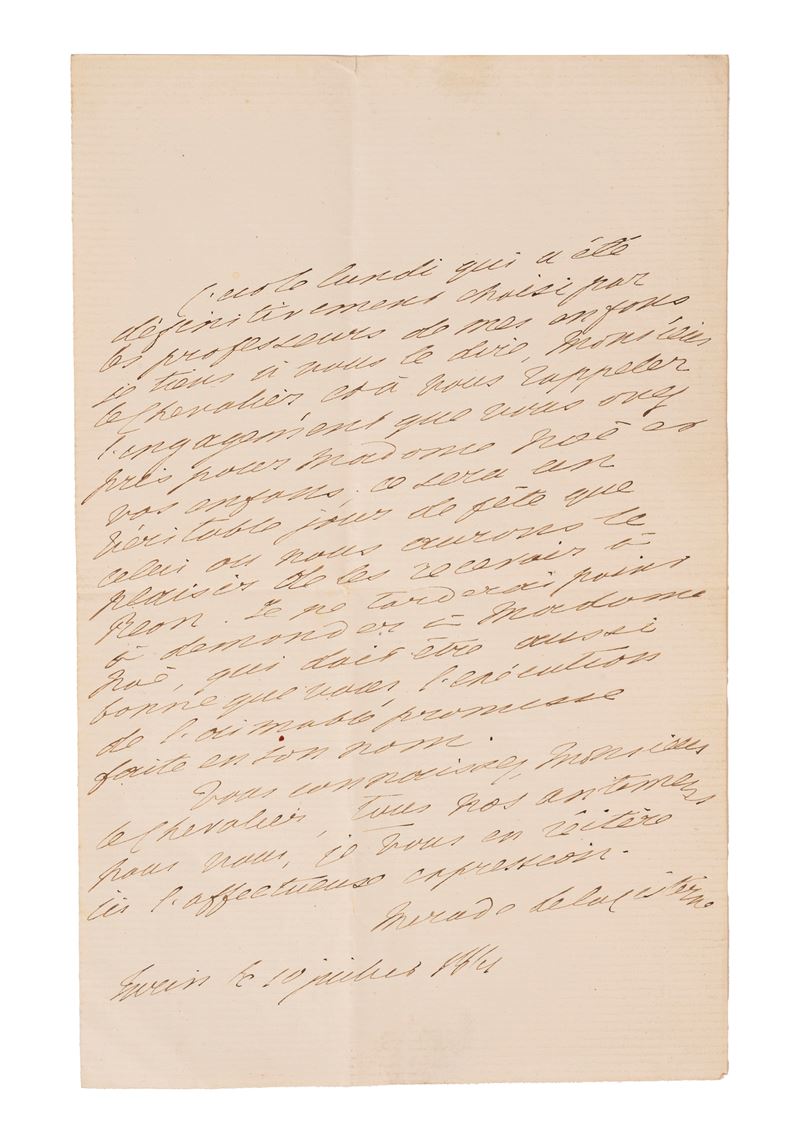 C'est le lundi qui a été
définitivement choisi par
les professeurs de mes enfans
je tiens à vous le dire, Monsieur
le Chevalier et à vous rappeler
l'engagement que vous avez
pris pour Madame Noë et
vos enfans. ce sera un
véritable jour de fête que
celui ou nous aurons le
plaisir de les recevoir à
Rean. Je ne tarderai point
à demander à Madame
Noë, qui doit être aussi
bonne que vous l'exécution
de l'aimable promesse
faite en son nom.
Vous connaissez, Monsieur
le Chevalier, tous nos sentimens
pour vous, je vous en réitère
ici l'affectueuse expression.
Merode de la Cisterne
Turin le 10 juillet